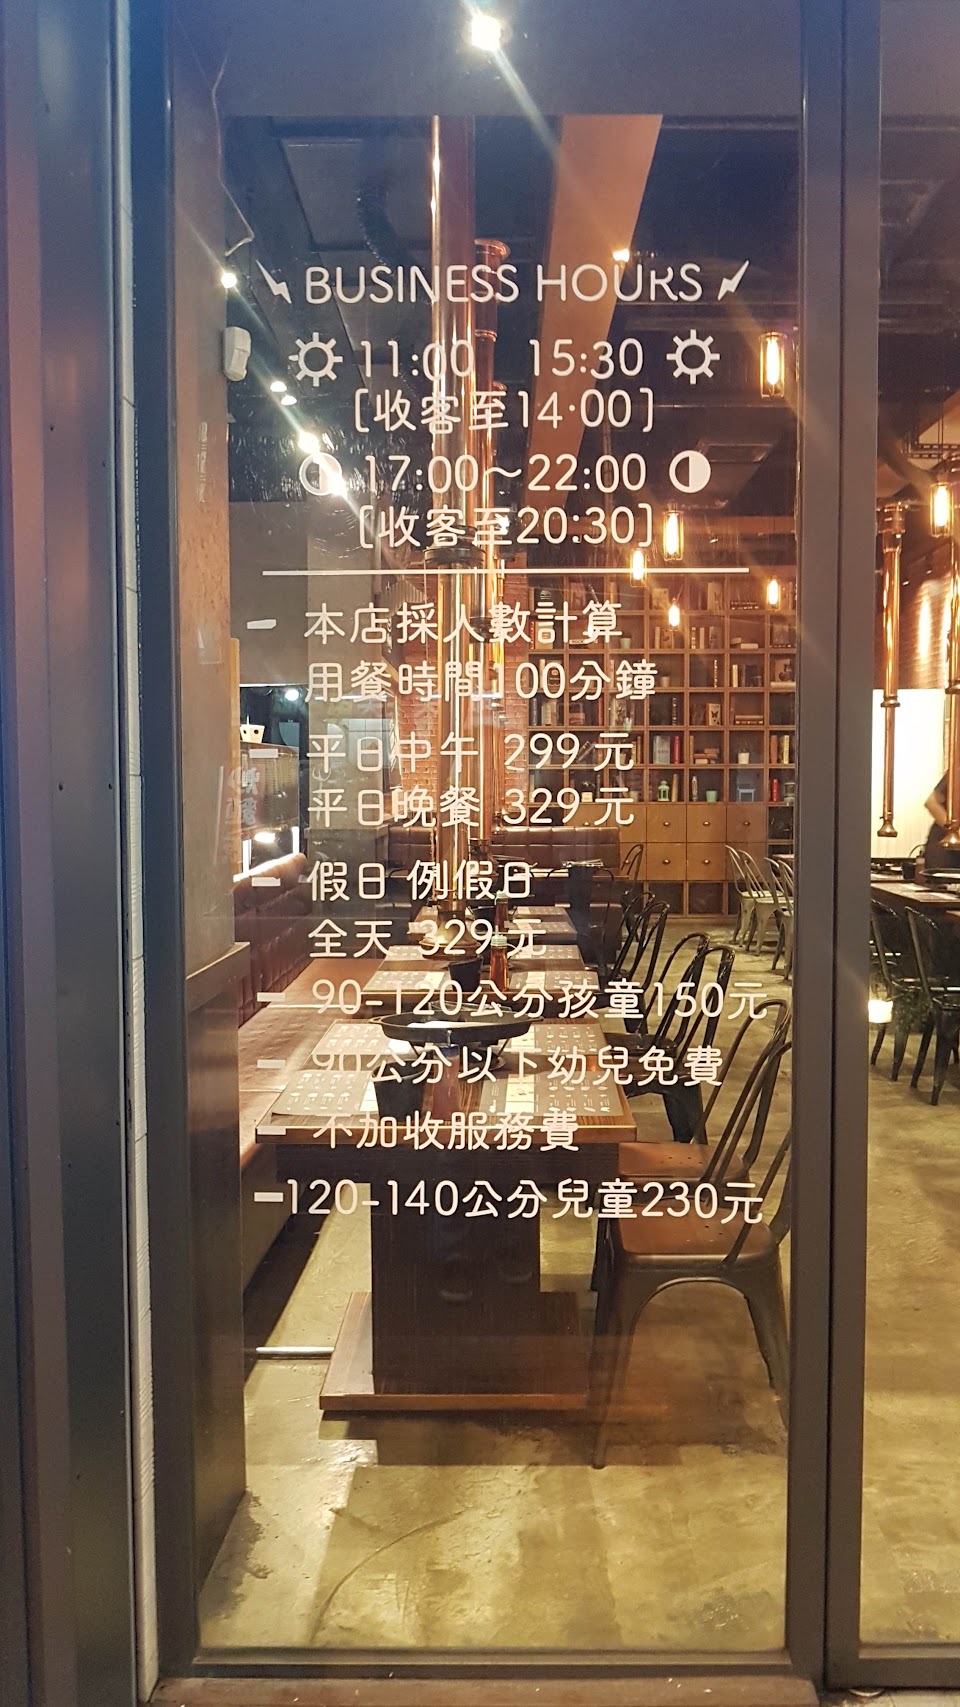 BUSINESS HOURS
11:00 15:30
[收客至14:00]
17:00~22:00
[收客至20:30]
- 本店採人數計算
用餐時間100分鐘
- 平日中午 299 元
平日晚餐 329 元
- 假日 例假日
全天 329 元
- 90-120公分孩童150元
- 90公分以下幼兒免費
- 不加收服務費
-120-140公分兒童230元